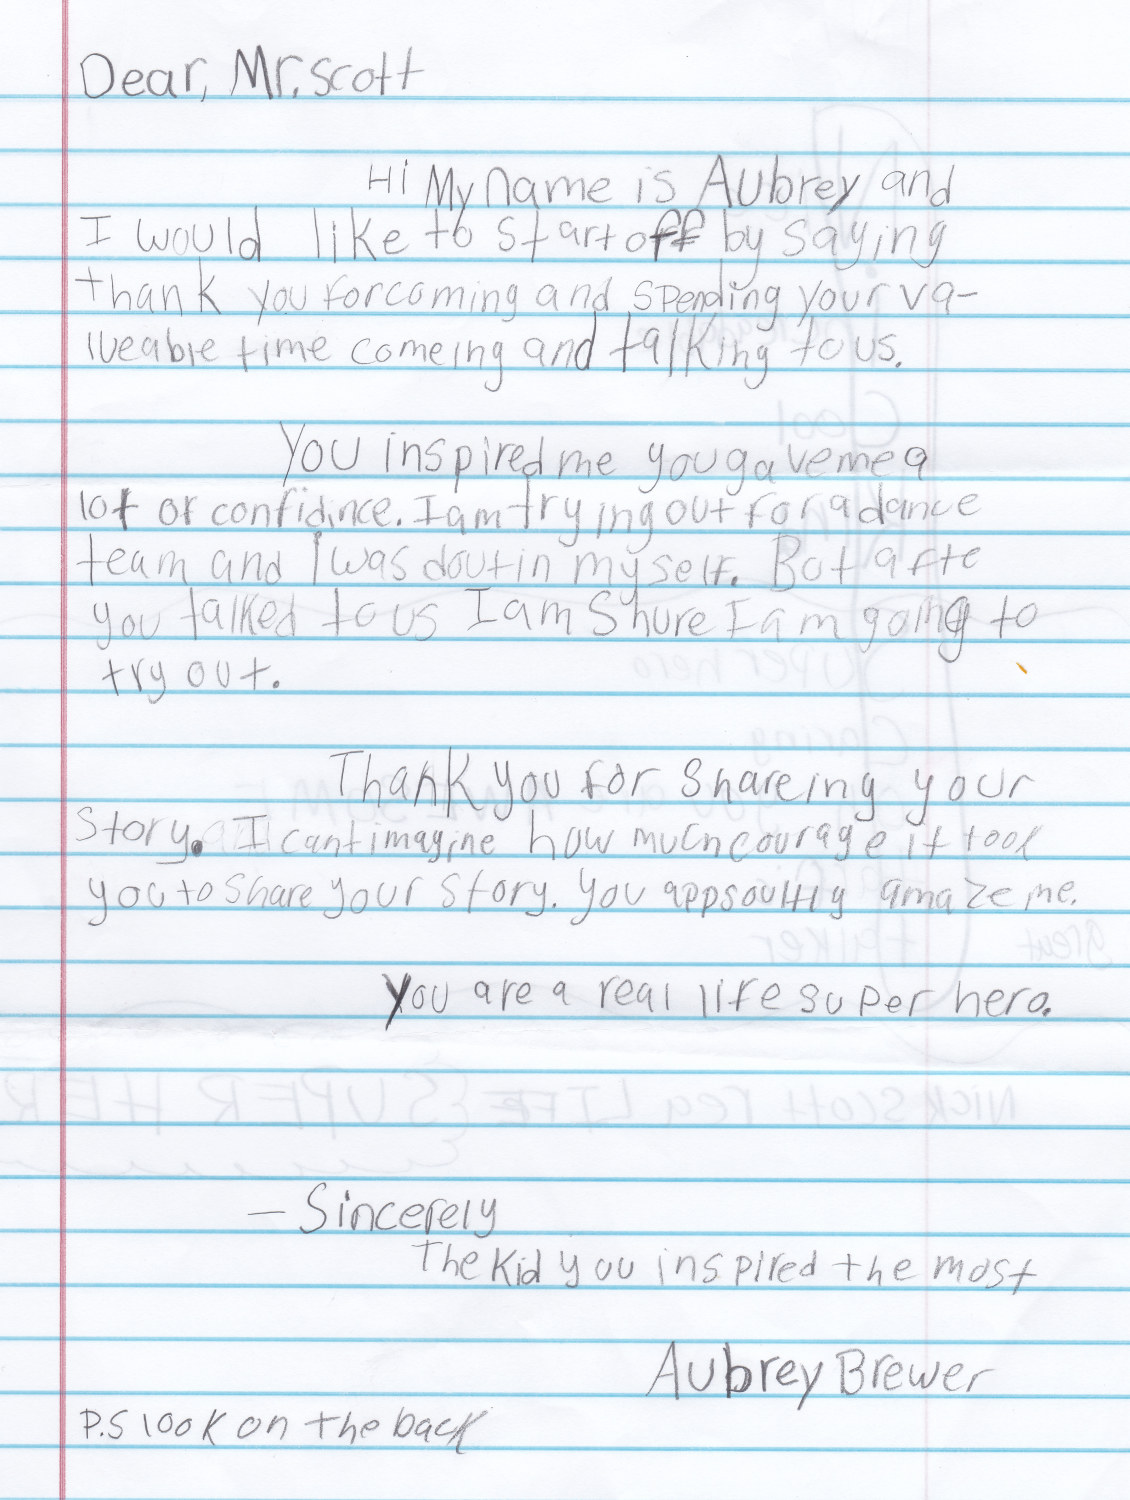 Dear, Mr. Scott
Hi My name is Aubrey and
I would like to start off by saying
thank you for coming and spending your va-
lueable time comeing and talking to us.
You inspired me you gave me a
lot of confidince. I am trying out for a dance
team and I was doutin my self. But afte
you talked to us I am Shure I am going to
try out.
Thank you for shareing your
Story. I cant imagine how much courage it took
you to share your story. You appsoultly amaze me.
You are a real life super hero.
— Sincerely
The Kid you inspired the most
Aubrey Brewer
P.S look on the back